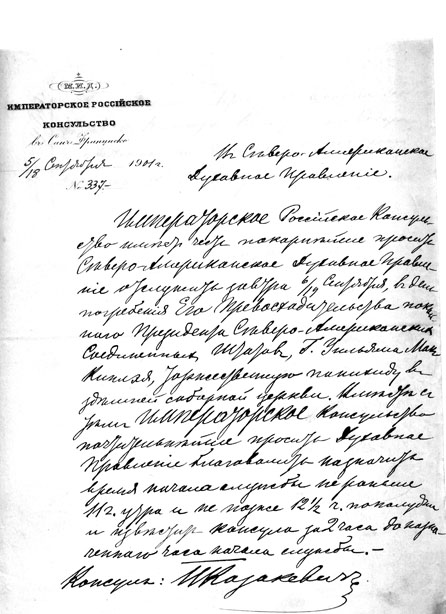 М.И.Д.
ИМПЕРАТОРСКОЕ РОССІЙСКОЕ
КОНСУЛЬСТВО
въ Санъ-Франциско
5/18 Сентября 1901 г.
№ 337–
Въ Сѣверо-Американское
Духовное Правленіе.
Императорское Россійское Консуль
ство имѣетъ честь покорнѣйше просить
Сѣверо-Американское Духовное Правле
ніе отслужить завтра 6/19 Сентября, въ день
погребенія Его Превосходительства покой
наго Президента Сѣверо-Американскихъ
Соединенныхъ Штатовъ, Г. Уильяма Макъ
Кинлея, торжественную панихиду въ
здѣшней соборной церкви.
Императорское Консульство
почтительнѣйше проситъ Духовное
Правленіе благоволить назначить
время начала службы не раньше
11 г. утра и не позже 12½ г. пополудни
и извѣстить консула за 2 часа до назна
ченнаго часа начала службы.–
Консулъ: П Козакевичъ